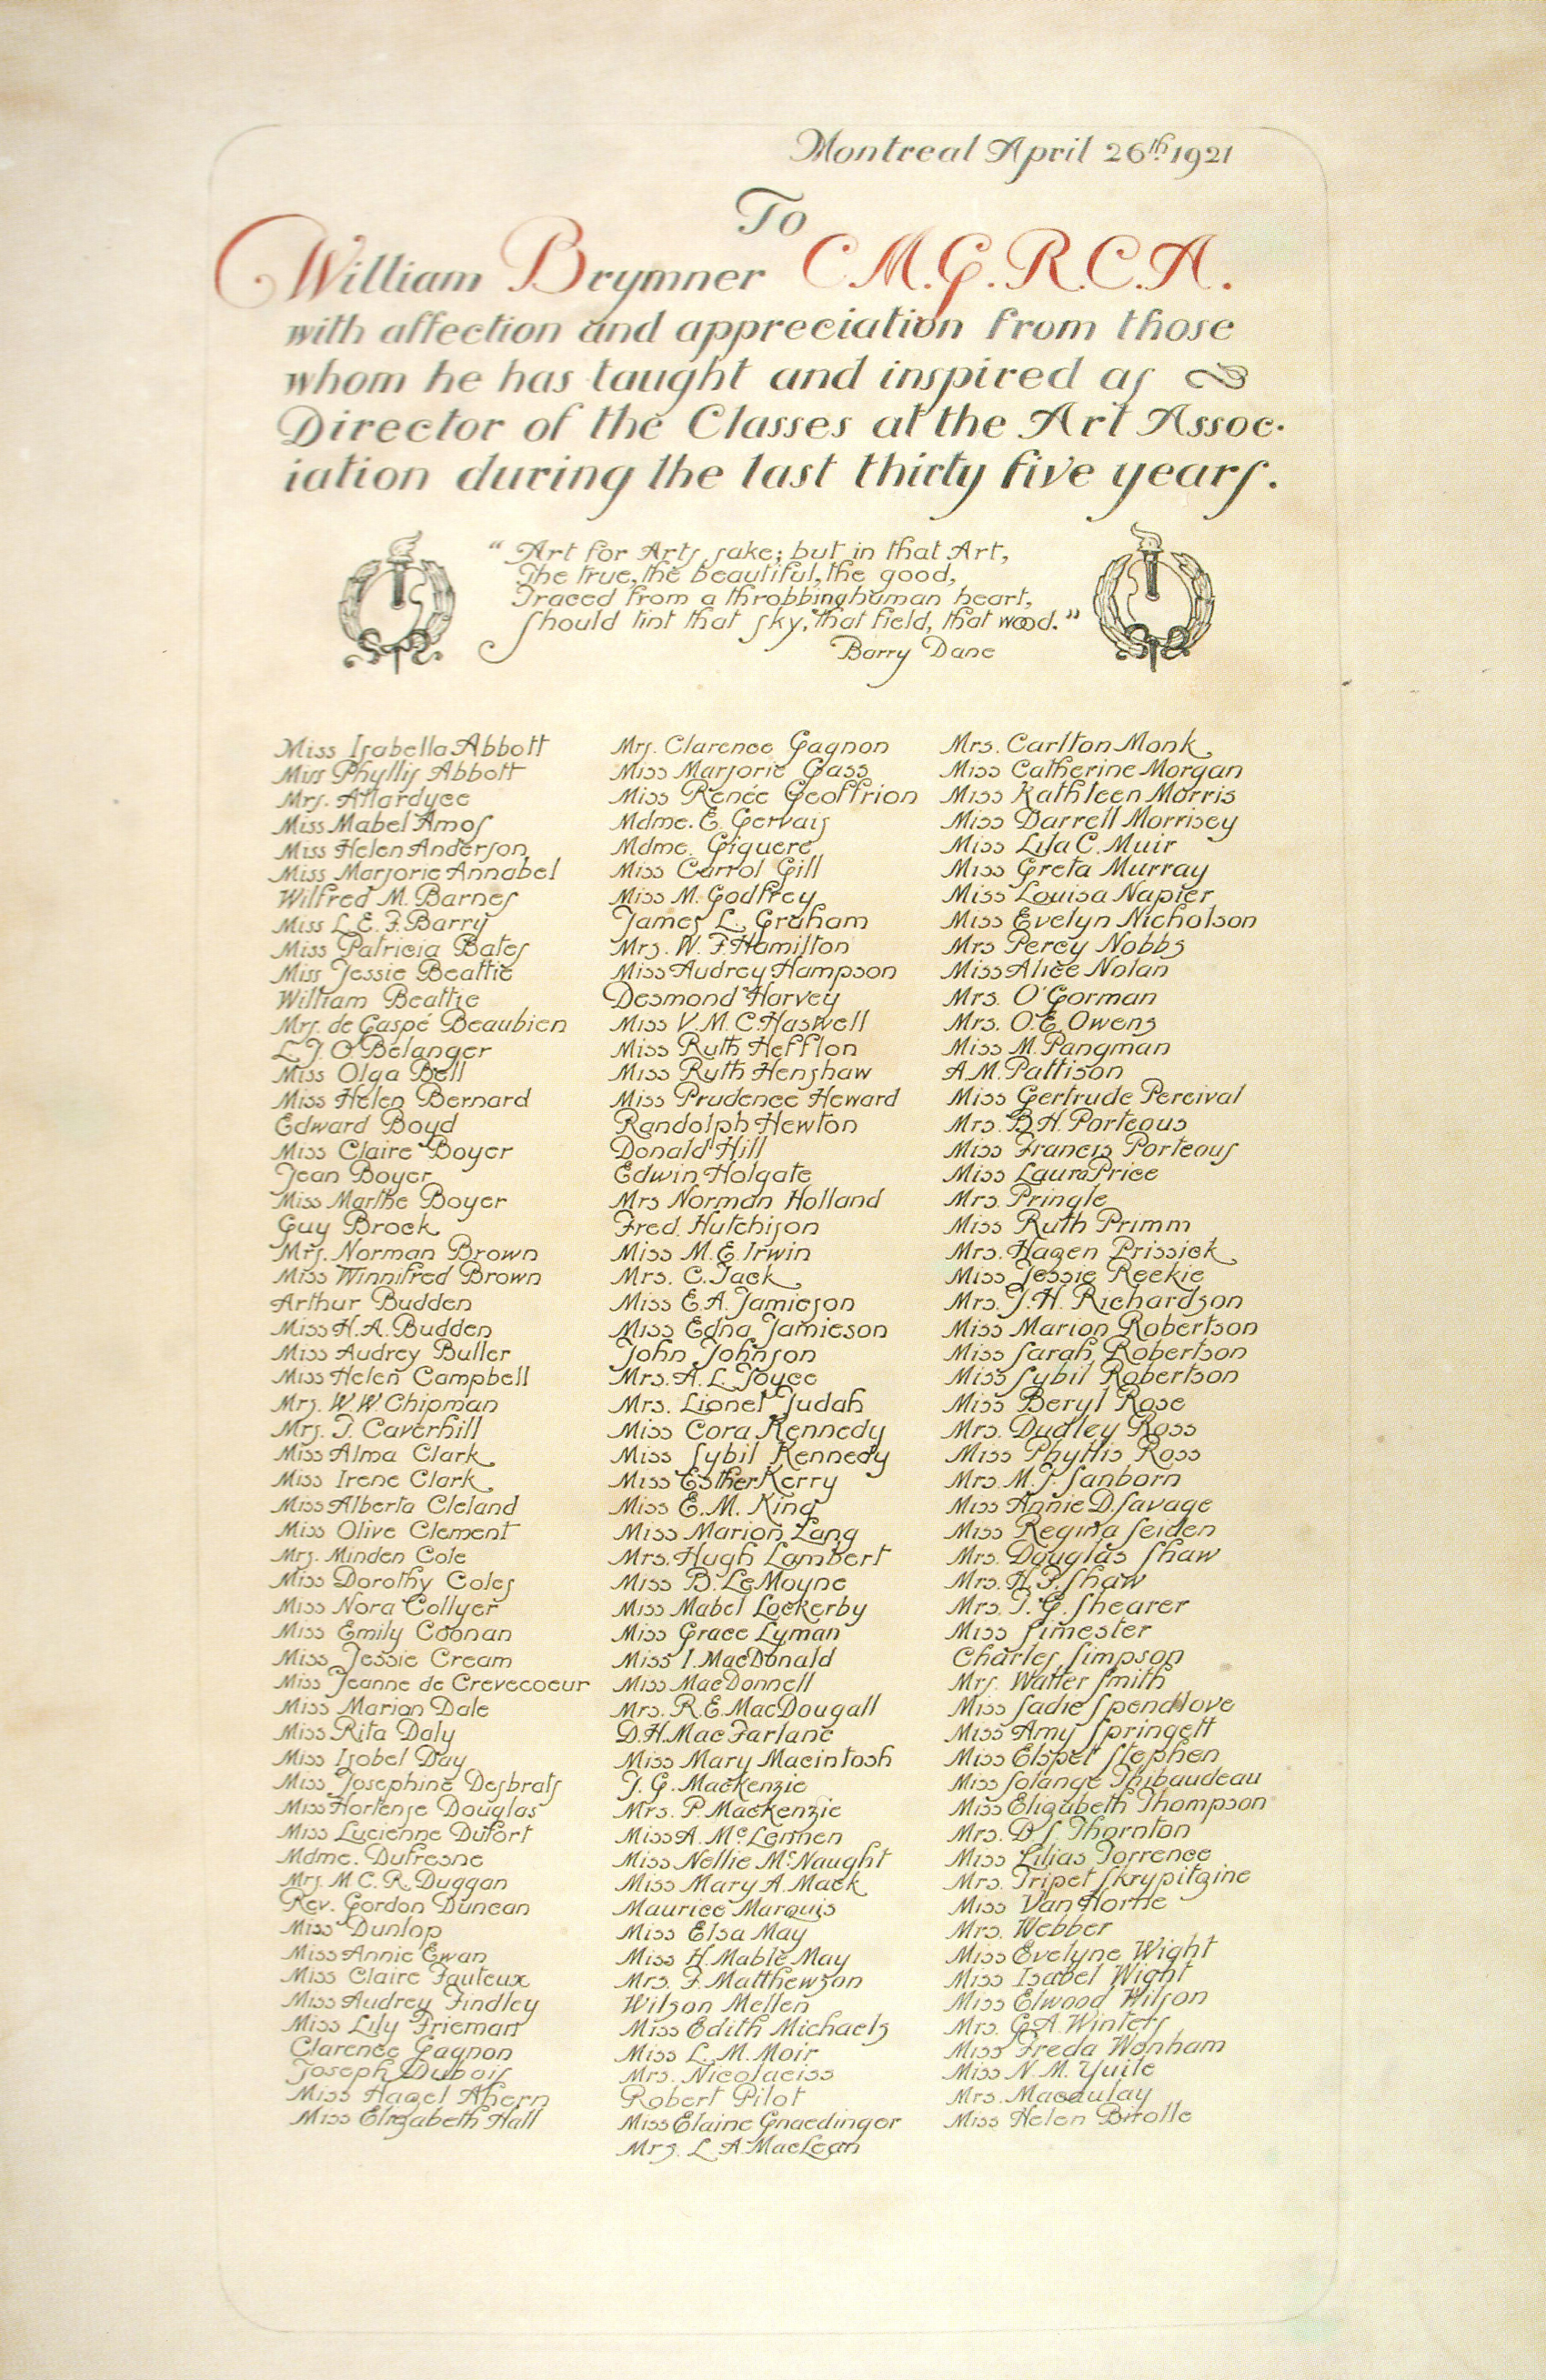 Montreal April 26th 1921
To
William Brymner C.M.G. R.C.A.
with affection and appreciation from those
whom he has taught and inspired as
Director of the Classes at the Art Assoc-
iation during the last thirty five years.
"Art for Arts sake; but in that Art,
The true, the beautiful, the good,
Traced from a throbbing human heart,
Should tint that sky, that field, that wood."
Barry Dane
Miss Isabella Abbott
Miss Phyllis Abbott
Mrs. Allardyce
Miss Mabel Amos
Miss Helen Anderson
Miss Marjorie Annabel
Wilfred M. Barnes
Miss L. E. F. Barry
Miss Patricia Bates
Miss Jessie Beattie
William Beattie
Mrs. de Gaspé Beaubien
L. J. O. Belanger
Miss Olga Bell
Miss Helen Bernard
Edward Boyd
Miss Claire Boyer
Jean Boyer
Miss Marthe Boyer
Guy Brock
Mrs. Norman Brown
Miss Winnifred Brown
Arthur Budden
Miss H. A. Budden
Miss Audrey Buller
Miss Helen Campbell
Mrs. W. W. Chipman
Mrs. J. Caverhill
Miss Alma Clark
Miss Irene Clark
Miss Alberta Cleland
Miss Olive Clement
Mrs. Minden Cole
Miss Dorothy Coles
Miss Nora Collyer
Miss Emily Coonan
Miss Jessie Cream
Miss Jeanne de Crevecoeur
Miss Marion Dale
Miss Rita Daly
Miss Isobel Day
Miss Josephine Desbrats
Miss Hortense Douglas
Miss Lucienne Dufort
Mdme. Dufresne
Mrs. M. C. R. Duggan
Rev. Gordon Duncan
Miss Dunlop
Miss Annie Ewan
Miss Claire Fauteux
Miss Audrey Findley
Miss Lily Frieman
Clarence Gagnon
Joseph Dubois
Miss Hazel Ahern
Miss Elizabeth Hall
Mrs. Clarence Gagnon
Miss Marjorie Gass
Miss Renée Geoffrion
Mdme. E. Gervais
Mdme. Giguere
Miss Carrol Gill
Miss M. Godfrey
James L. Graham
Mrs. W. F. Hamilton
Miss Audrey Hampson
Desmond Harvey
Miss V. M. C. Haswell
Miss Ruth Hefflon
Miss Ruth Henshaw
Miss Prudence Heward
Randolph Hewton
Donald Hill
Edwin Holgate
Mrs Norman Holland
Fred. Hutchison
Miss M. E. Irwin
Mrs. C. Jack
Miss E. A. Jamieson
Miss Edna Jamieson
John Johnson
Mrs. A. L. Joyce
Mrs. Lionel Judah
Miss Cora Kennedy
Miss Sybil Kennedy
Miss Esther Kerry
Miss E. M. King
Miss Marion Lang
Mrs. Hugh Lambert
Miss B. LeMoyne
Miss Mabel Lockerby
Miss Grace Lyman
Miss I. MacDonald
Miss MacDonnell
Mrs. R. E. MacDougall
D. H. MacFarlane
Miss Mary Macintosh
J. G. Mackenzie
Mrs. P. Mackenzie
Miss A. McLennen
Miss Nellie McNaught
Miss Mary A. Mack
Maurice Marquis
Miss Elsa May
Miss H. Mable May
Mrs. F. Matthewson
Wilson Mellen
Miss Edith Michaels
Miss L. M. Moir
Mrs. Nicolaeiss
Robert Pilot
Miss Elaine Gnaedinger
Mrs. L. A. MacLean
Mrs. Carlton Monk
Miss Catherine Morgan
Miss Kathleen Morris
Miss Darrell Morrisey
Miss Lila C. Muir
Miss Greta Murray
Miss Louisa Napier
Miss Evelyn Nicholson
Mrs Percy Nobbs
Miss Alice Nolan
Mrs. O'Gorman
Mrs. O. E. Owens
Miss M. Pangman
A. M. Pattison
Miss Gertrude Percival
Mrs. B. H. Porteous
Miss Francis Porteous
Miss Laura Price
Mrs. Pringle
Miss Ruth Primm
Mrs. Hagen Prissick
Miss Jessie Reekie
Mrs. J. H. Richardson
Miss Marion Robertson
Miss Sarah Robertson
Miss Sybil Robertson
Miss Beryl Rose
Mrs. Dudley Ross
Miss Phyllis Ross
Mrs. M. J. Sanborn
Miss Annie D. Savage
Miss Regina Seiden
Mrs. Douglas Shaw
Mrs. H. P. Shaw
Mrs. J. G. Shearer
Miss Simester
Charles Simpson
Mrs. Walter Smith
Miss Sadie Spendlove
Miss Amy Springett
Miss Elspet Stephen
Miss Solange Thibaudeau
Miss Elizabeth Thompson
Mrs. D. S. Thornton
Miss Lilias Torrence
Mrs. Tripet Skrypitzine
Miss Van Horne
Mrs. Webber
Miss Evelyne Wight
Miss Isabel Wight
Miss Elwood Wilson
Mrs. G. A. Winters
Miss Freda Wonham
Miss N. M. Yuile
Mrs. Macaulay
Miss Helen Birolle